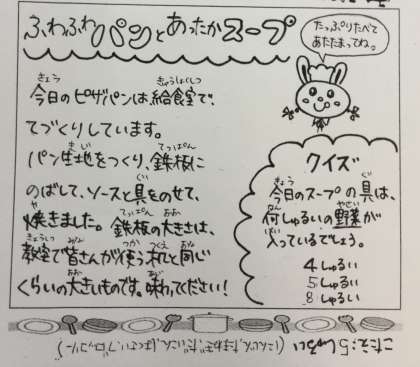 ふわふわパンとあったかスープ
たっぷりたべて
あたたまってね。
今日のピザパンは給食室で、
てづくりしています。
パン生地をつくり、鉄板に
のばして、ソースと具をのせて、
焼きました。鉄板の大きさは、
教室で皆さんが使う机と同じ
くらいの大きいものです。味わってください!
クイズ
今日のスープの具は、
何しゅるいの野菜が
入っているでしょう。
4しゅるい
5しゅるい
8しゅるい
こたえ:5しゅるい
(にんじん、たまねぎ、だいこん、はくさい、ブロッコリー)